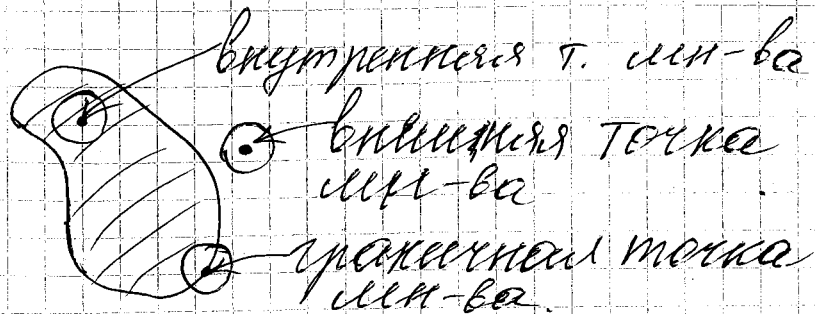 внутренняя т. мн-ва
внешняя точка
мн-ва
граничная точка
мн-ва.